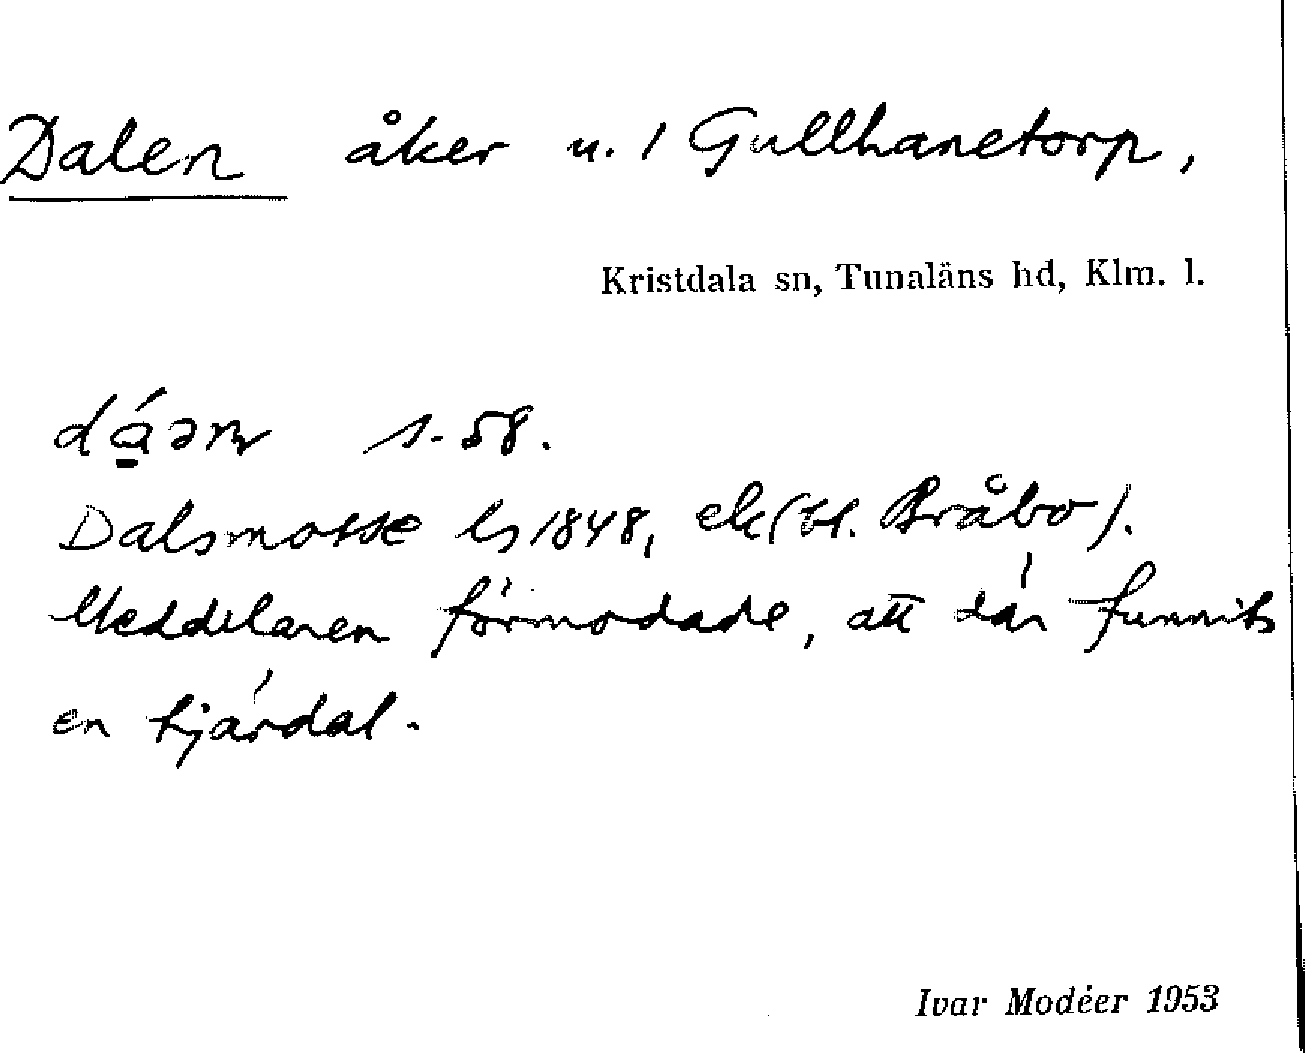 Dalen åker u. 1 Gullhanetorp,
Kristdala sn, Tunaläns hd, Klm. l.
dáən s. 58.
Dalsmosse ls 1848, ek (bl. Bråbo).
Meddelaren förmodade, att där funnits
en tjärdal.
Ivar Modéer 1953